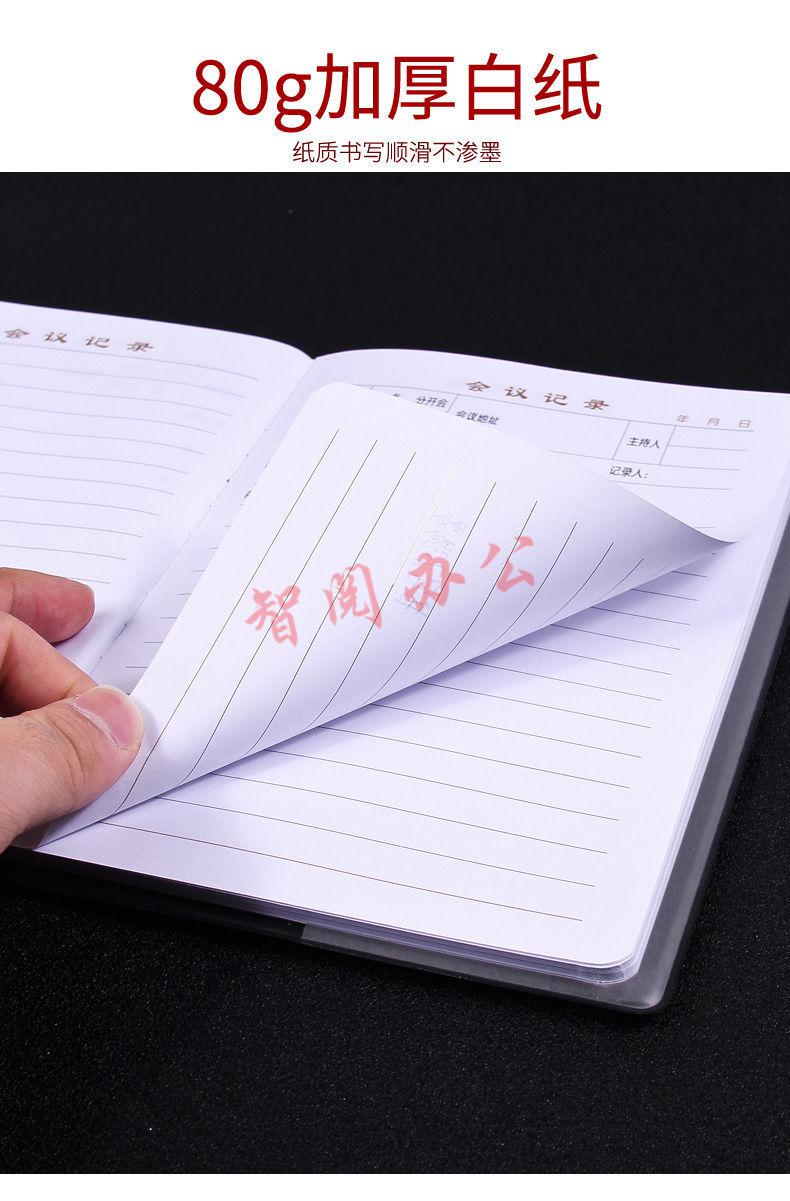 80g加厚白纸
纸质书写顺滑不渗墨
会议记录
会议记录
年 月 日
分开会
会议地址
主持人
记录人:
智阅办公